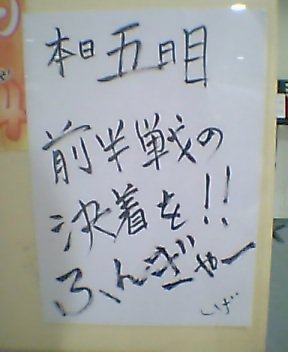 本日五日目
前半戦の
決着を!!
ふんぎゃー
しげ